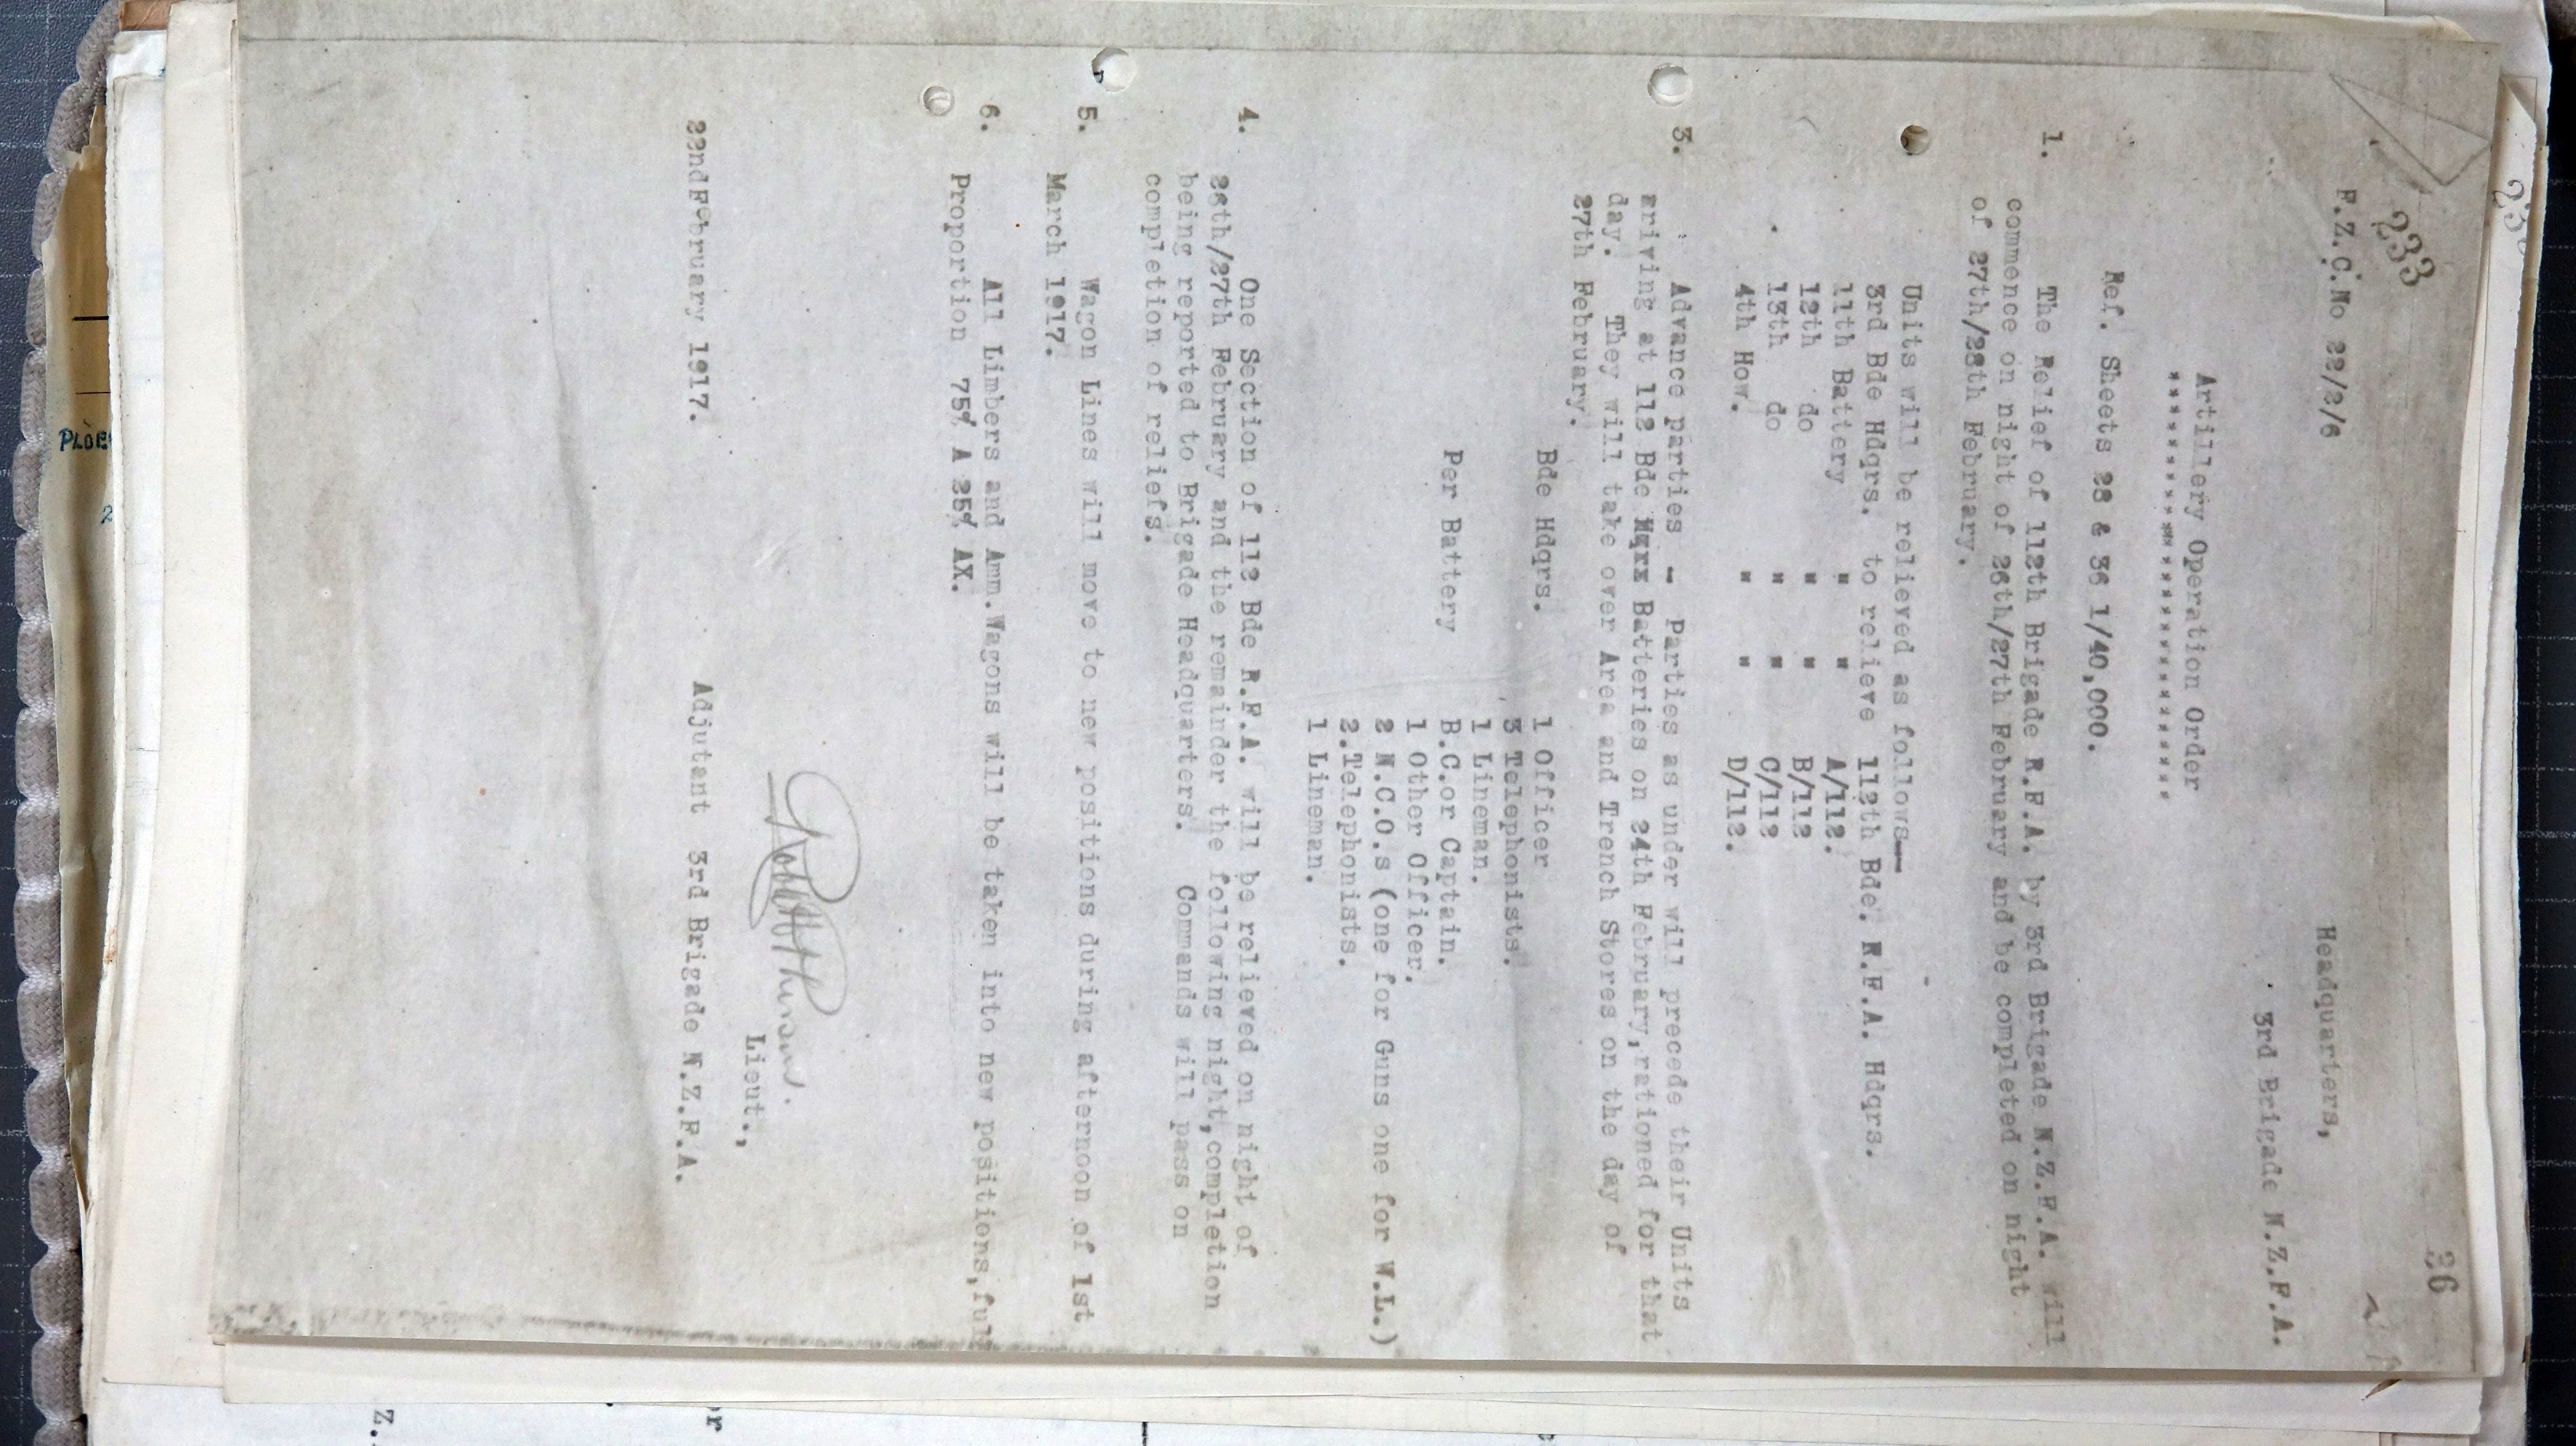 233
36
F.Z.C.No 22/2/6
Headquarters,
3rd Brigade N.Z.F.A.
Artillery Operation Order
Ref. Sheets 28 & 36 1/40,000.
1. The Relief of 112th Brigade R.F.A. by 3rd Brigade N.Z.F.A. will
commence on night of 26th/27th February and be completed on night
of 27th/28th February.
Units will be relieved as follows—
3rd Bde Hdqrs. to relieve 112th Bde. R.F.A. Hdqrs.
11th Battery " " A/112.
12th do " " B/112
13th do " " C/112
4th How. " " D/112.
3. Advance parties - Parties as under will precede their Units
ariving at 112 Bde Hqrx Batteries on 24th February,rationed for that
day. They will take over Area and Trench Stores on the day of
27th February.
Bde Hdqrs. 1 Officer
3 Telephonists.
1 Lineman.
Per Battery B.C.or Captain.
1 Other Officer.
2 N.C.O.s (one for Guns one for W.L.)
2.Telephonists.
1 Lineman.
4. One Section of 112 Bde R.F.A. will be relieved on night of
26th/27th February and the remainder the following night,completion
being reported to Brigade Headquarters. Commands will pass on
completion of reliefs.
5. Wagon Lines will move to new positions during afternoon of 1st
March 1917.
6. All Limbers and Amn.Wagons will be taken into new positions,full
Proportion 75% A 25% AX.
Lieut.,
22ndFebruary 1917. Adjutant 3rd Brigade N.Z.F.A.